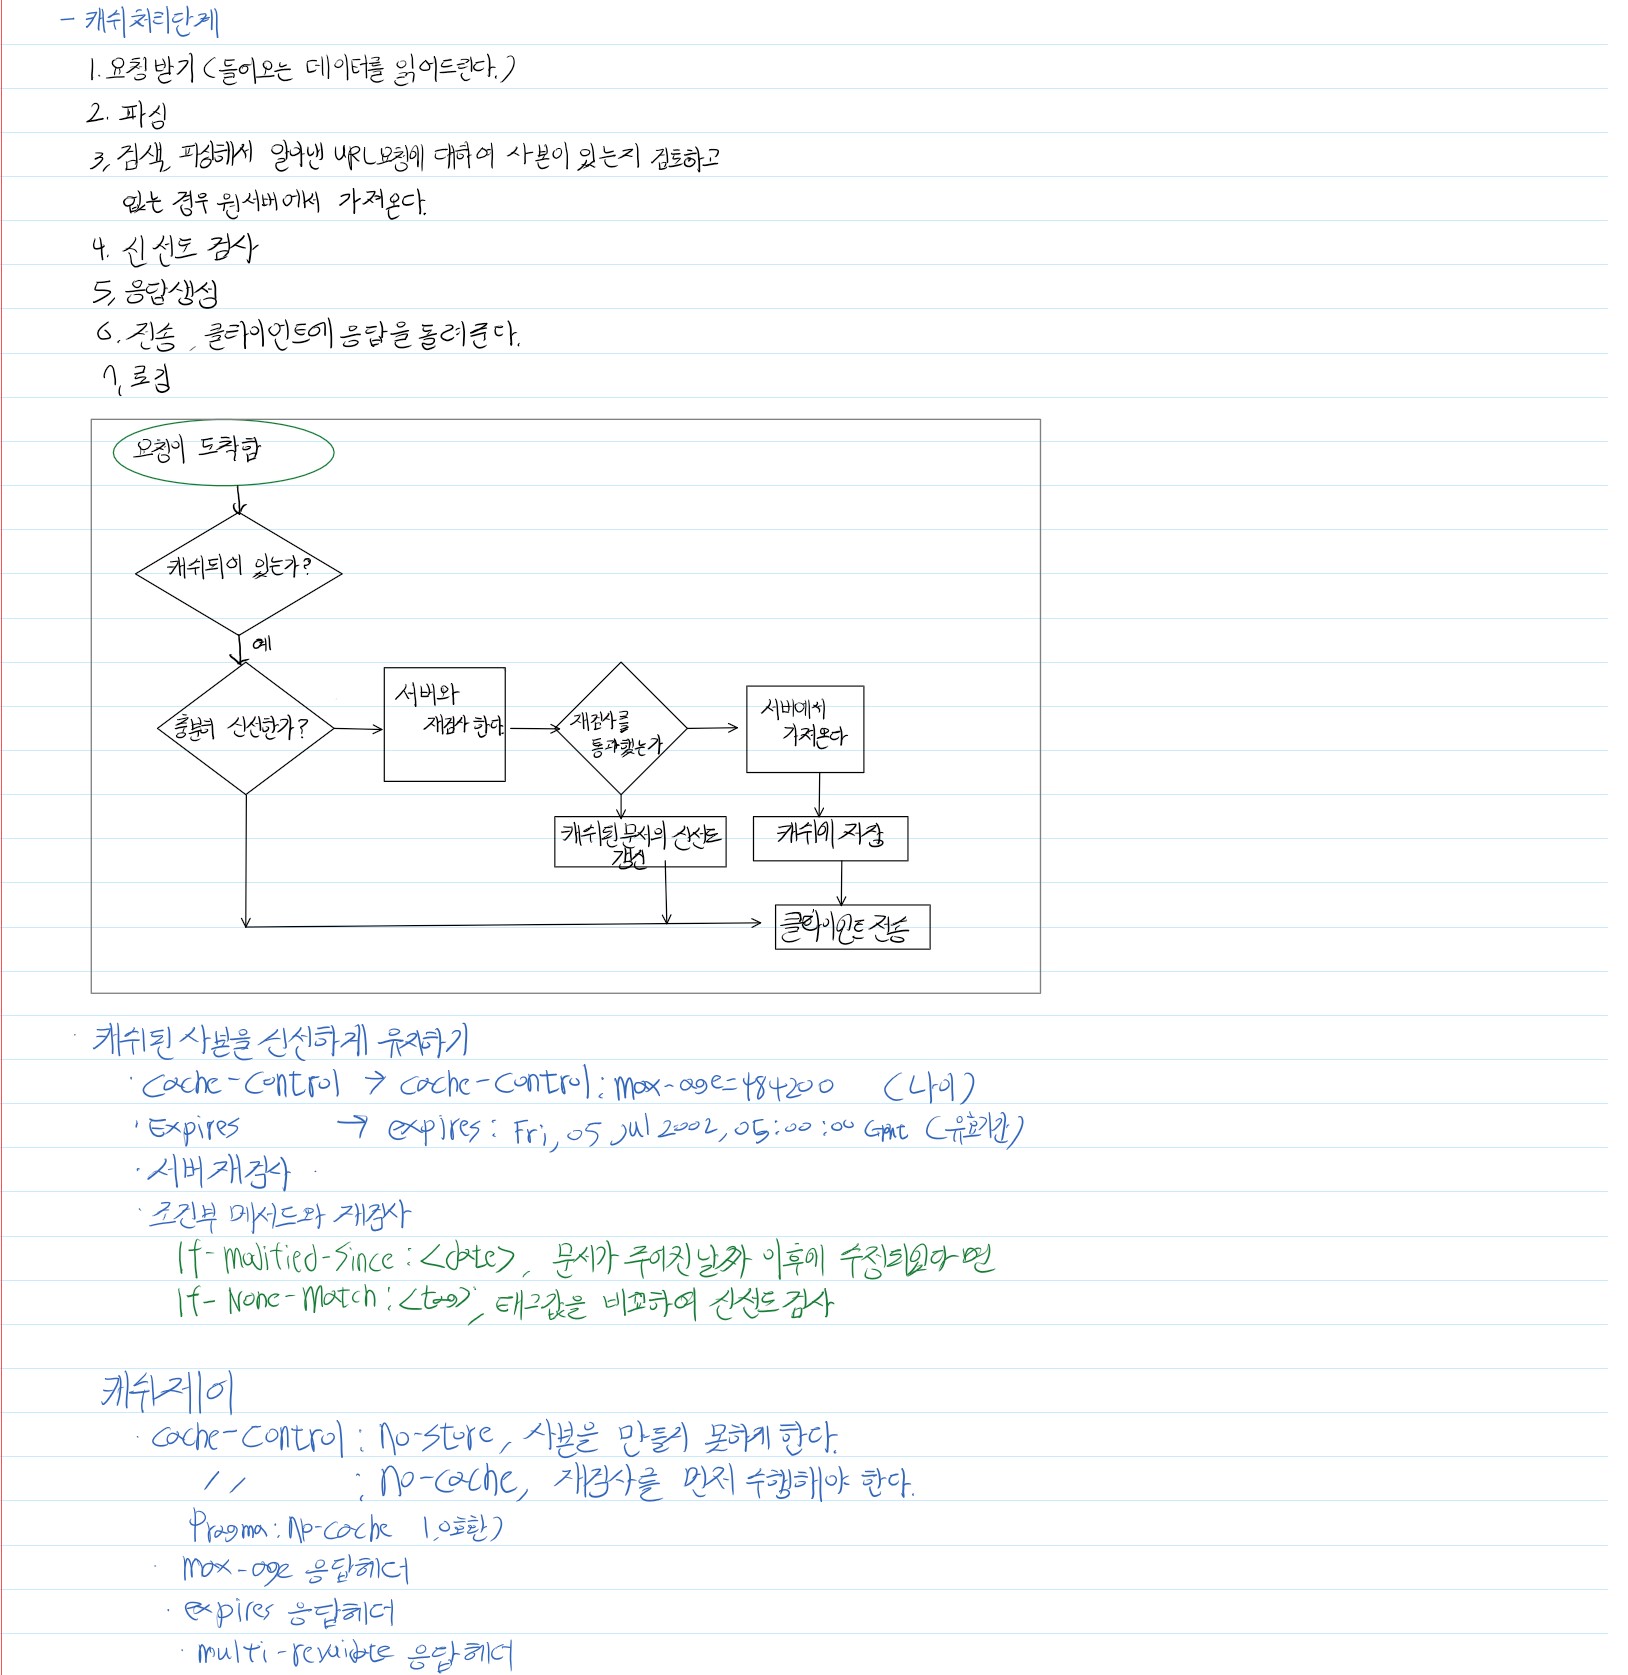 - 캐쉬 처리단계
1. 요청 받기 (들어오는 데이터를 읽어드린다.)
2. 파싱
3. 검색, 파싱해서 알아낸 URL요청에 대하여 사본이 있는지 검토하고
없는 경우 원서버에서 가져온다.
4. 신선도 검사
5. 응답생성
6. 전송, 클라이언트에 응답을 돌려준다.
7. 로깅
요청이 도착함
캐쉬되어 있는가?
예
충분히 신선한가?
서버와
재검사 한다
재검사를
통과했는가
서버에서
가져온다
캐쉬된 문서의 신선도
갱신
캐쉬에 저장
클라이언트 전송
· 캐쉬된 사본을 신선하게 유지하기
· Cache-Control → cache-control: max-age=484200 (나이)
· Expires → expires: Fri, 05 Jul 2002, 05:00:00 GMT (유효기간)
· 서버 재검사
· 조건부 메서드와 재검사
If-modified-since: <date>, 문서가 주어진 날짜 이후에 수정되었다면
If-None-Match: <tag>, 태그값을 비교하여 신선도 검사
캐쉬제어
· cache-control : no-store, 사본을 만들지 못하게 한다.
// : no-cache, 재검사를 먼저 수행해야 한다.
Pragma: No-cache 1.0호환)
· max-age 응답헤더
· expires 응답헤더
· multi-revaidate 응답헤더